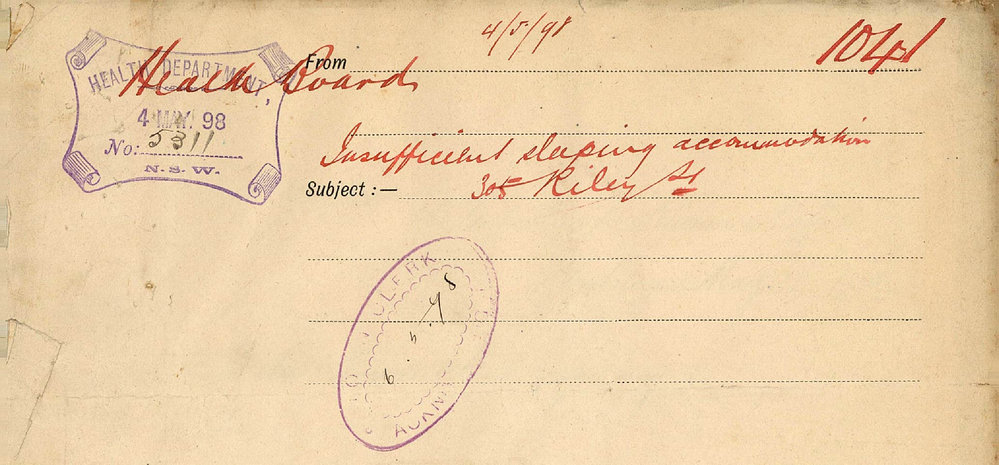 4/5/98
1041
From
Health Board
HEALTH DEPARTMENT,
4 MAY. 98
No: 5311
N. S. W.
Insufficient sleeping accommodation
Subject :— 305 Riley St
CLERK
6. 5. 98
ACKN